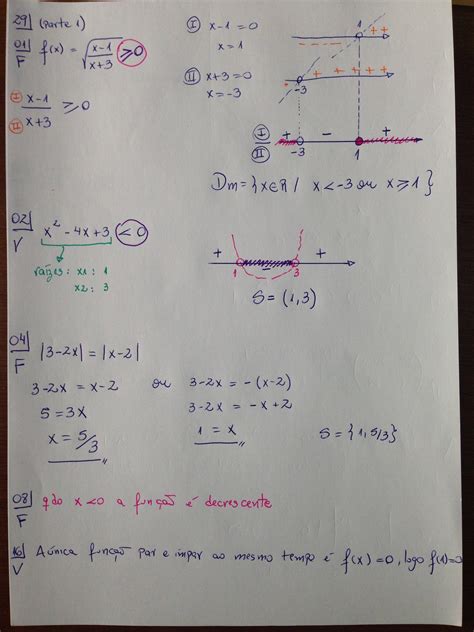 29 (parte 1)
01 f(x) = √(x-1/x+3) ≥0
F
I x-1/x+3 ≥0
II
I x-1=0
x=1
II x+3=0
x=-3
- - - - 1 + +
- -3 + + + + + +
I/II + -3 - 1 +
Dm={x∈R/ x<-3 ou x≥1}
02 x² -4x+3 <0
V
raízes: x1: 1
x2: 3
+ 1 - 3 +
S = (1,3)
04 |3-2x|=|x-2|
F
3-2x = x-2 ou 3-2x = -(x-2)
5=3x 3-2x = -x+2
x=5/3 1 = x
S={1,5/3}
08 qdo x<0 a função é decrescente
F
16 A única função par e ímpar ao mesmo tempo é f(x)=0, logo f(1)=0
V